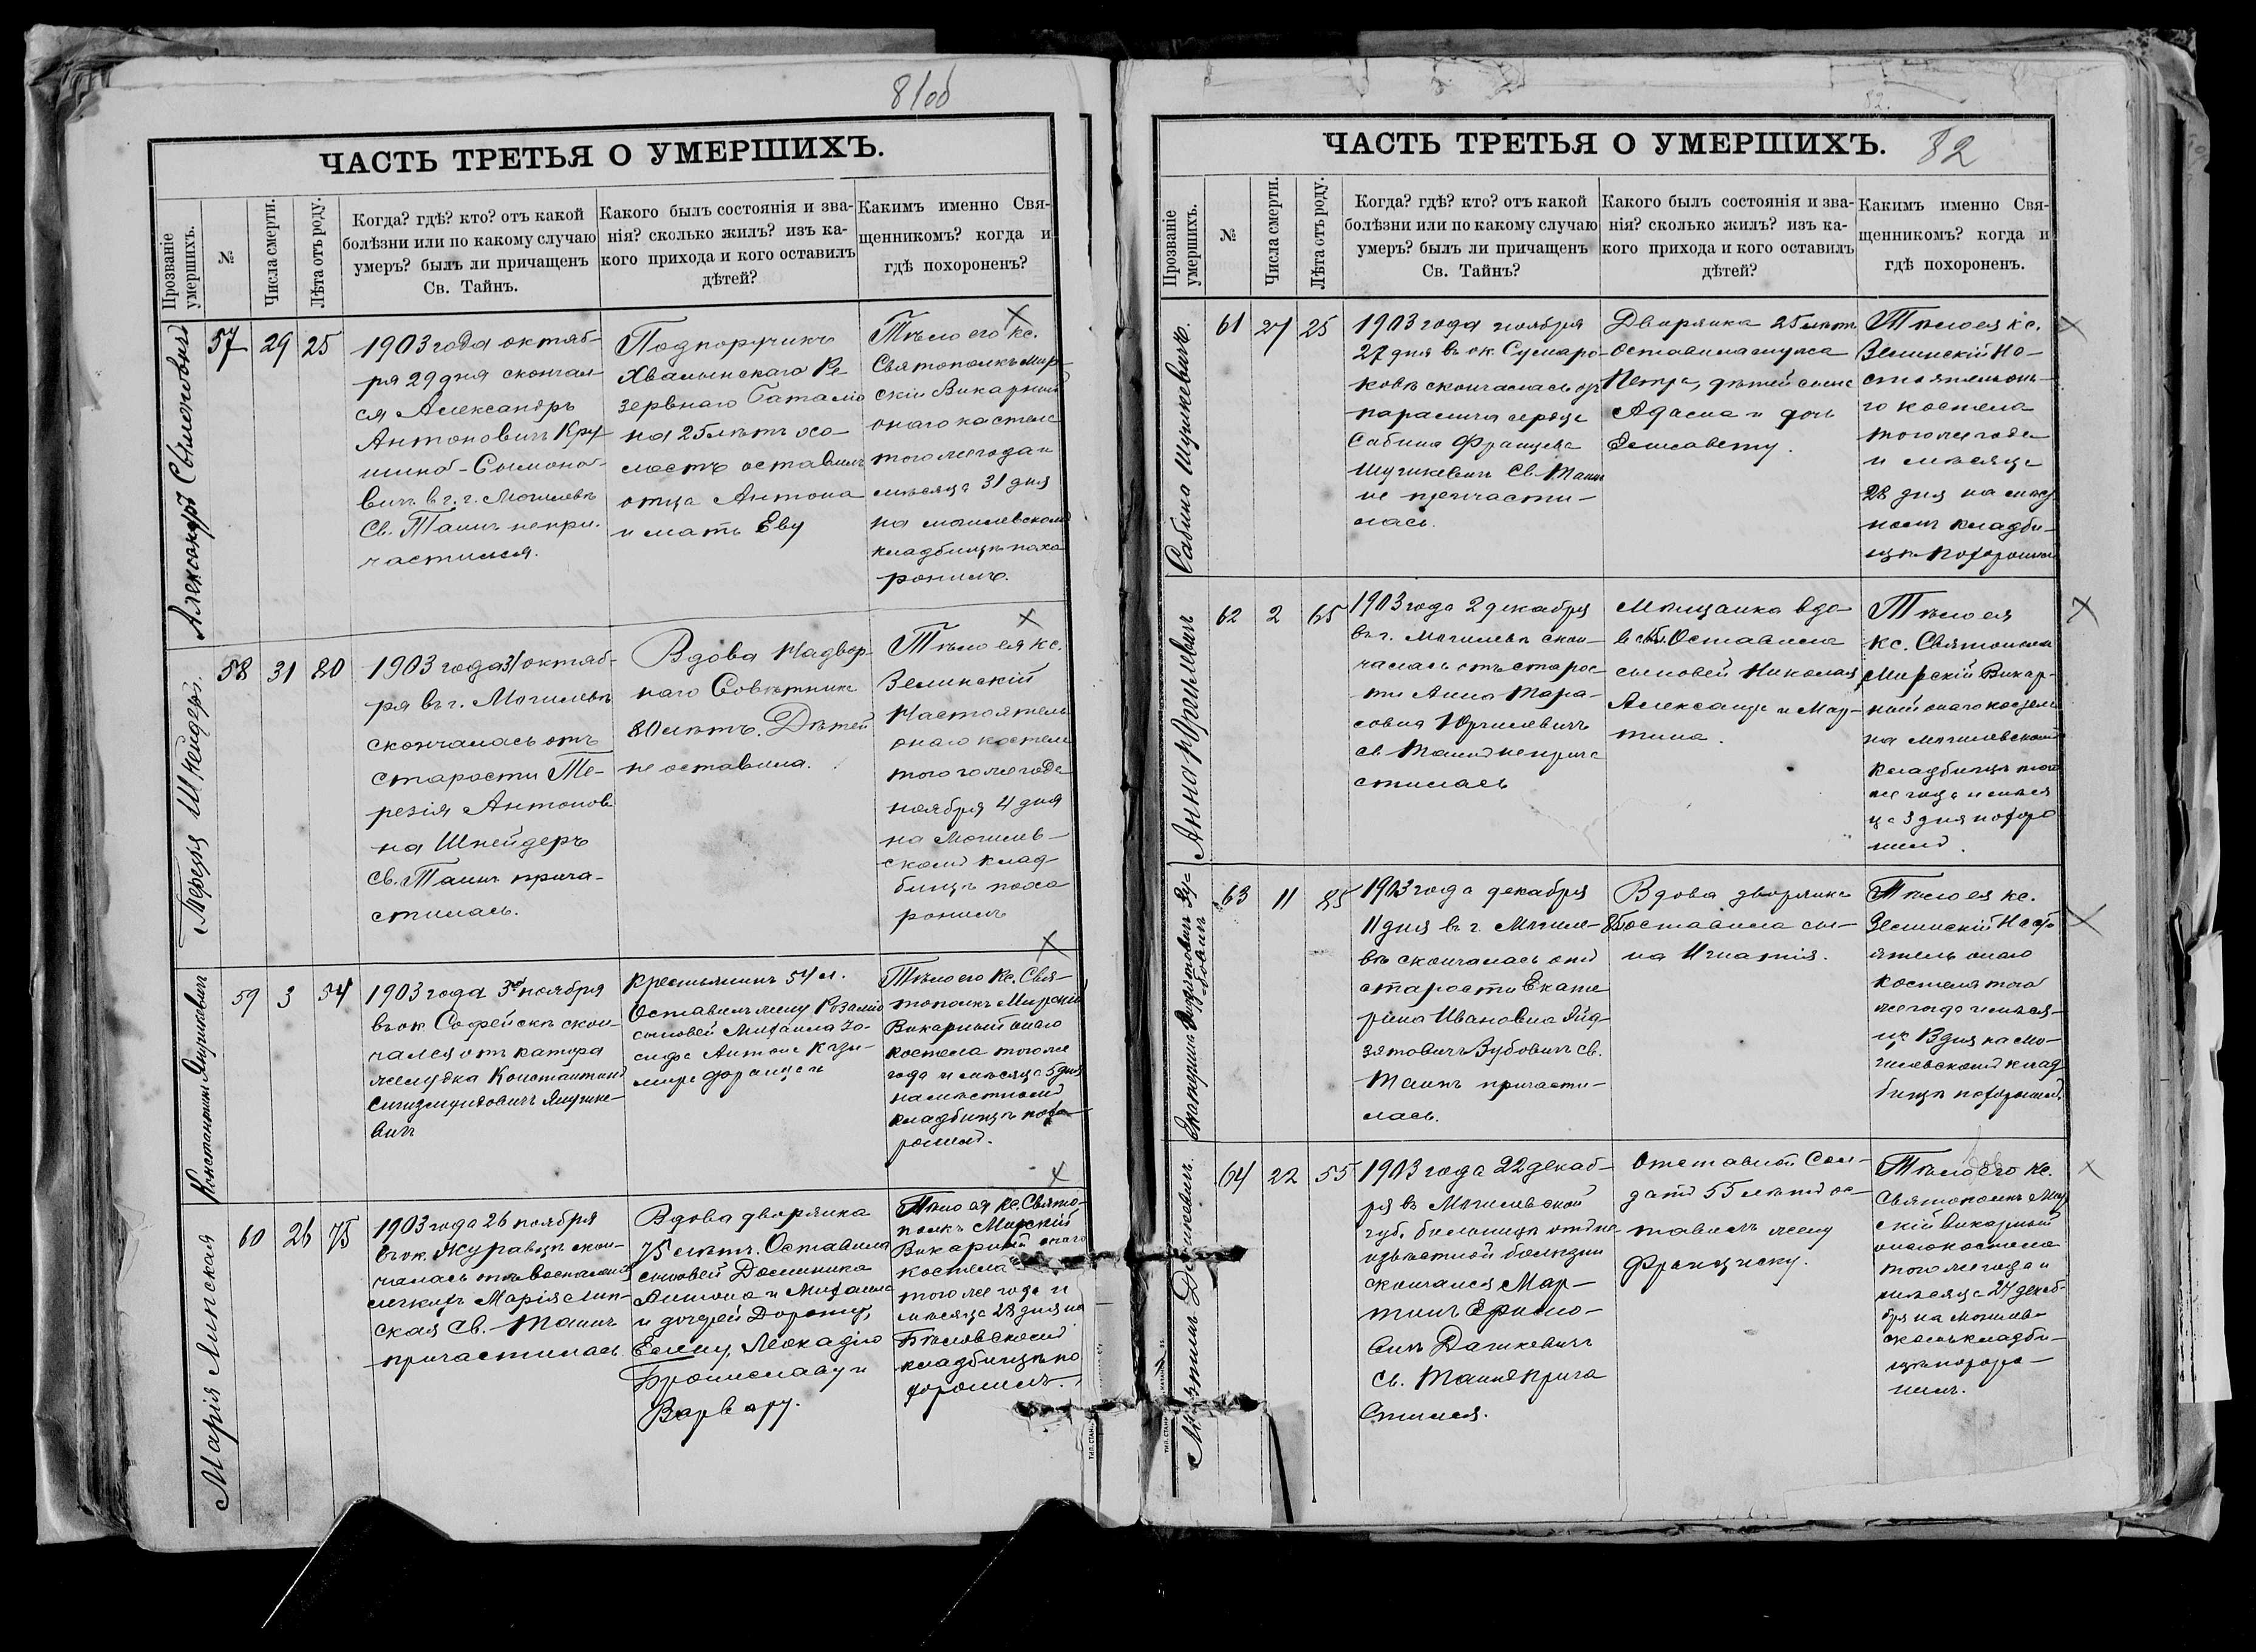 81об
ЧАСТЬ ТРЕТЬЯ О УМЕРШИХЪ.
Прозваніе умершихъ.
№
Числа смерти.
Лѣта отъ роду.
Когда? гдѣ? кто? отъ какой
болѣзни или по какому случаю
умеръ? былъ ли причащенъ
Св. Тайнъ.
Какого былъ состоянія и зва-
нія? сколько жилъ? изъ ка-
кого прихода и кого оставилъ
дѣтей?
Какимъ именно Свя-
щенникомъ? когда и
гдѣ похороненъ?
Александръ
57
29
25
1903 года октяб-
ря 29 дня скончал-
ся Александръ
Антоновичъ
вичъ в г. г. Могилевѣ
Св. Таинъ непри-
частился.
Подпоручикъ
Хвалынскаго Ре
зервнаго Баталіо
на 25 лѣтъ хо-
лостъ оставилъ
отца Антона
и мать Еву
Тѣло его кс.
Святополкъ Мир-
скій Викарный
онаго костела
того же года и
мѣсяца 31 дня
на могилевскомъ
кладбищѣ похо
ронилъ.
Терезія Шнейдеръ.
58
31
80
1903 года 31 октяб-
ря въ г. Могилевѣ
скончалась отъ
старости Те-
резія Антонов
на Шнейдеръ
Св. Таинъ прича-
стилась.
Вдова Надвор-
наго Совѣтника
80 лѣтъ. Дѣтей
не оставила.
Тѣло ея кс.
Зелинскій
Настоятель
онаго костела
того же года
ноября 4 дня
на Могилев-
скомъ клад-
бищѣ похо
ронилъ
Константинъ
59
3
54
1903 года 3го ноября
въ ок. Софейскѣ скон-
чался отъ катара
желудка Константинъ
Сигизмундовичъ
вичъ
Крестьянинъ 54 л.
Оставилъ жену Розалію
сыновей Михаила Іо-
сифа Антона Кази-
мира Франца
Тѣло его Кс. Свя-
тополкъ Мирскій
Викарный онаго
костела того же
года и мѣсяца 5 дня
на мѣстномъ
кладбищѣ похо-
ронилъ.
Марія Липская
60
26
75
1903 года 26 ноября
въ ок. Журавцѣ скон-
чалась отъ воспаленія
легкихъ Марія Лип-
ская Св. Таинъ
причастилась
Вдова дворянка
75 лѣтъ. Оставила
сыновей Доминика
Антона и Михаила
и дочерей Дороту,
Елену, Леокадію
Брониславу и
Варвару.
Тѣло ея Кс. Свято-
полкъ Мирскій
Викарный онаго
костела
того же года и
мѣсяца 28 дня на
кладбищѣ по
хоронилъ.
82
ЧАСТЬ ТРЕТЬЯ О УМЕРШИХЪ.
Прозваніе умершихъ.
№
Числа смерти.
Лѣта отъ роду.
Когда? гдѣ? кто? отъ какой
болѣзни или по какому случаю
умеръ? былъ ли причащенъ
Св. Тайнъ?
Какого былъ состоянія и зва-
нія? сколько жилъ? изъ ка-
кого прихода и кого оставилъ
дѣтей?
Какимъ именно Свя-
щенникомъ? когда и
гдѣ похороненъ.
Сабина
61
27
25
1903 года ноября
27 дня въ ок. Сумаро-
ковѣ скончалась отъ
паралича сердца
Сабина
Св. Таинъ
не причасти-
лась.
Дворянка 25 лѣтъ
Оставила мужа
Петра, дѣтей сына
Адама и дочь
Елисавету.
Тѣло ея кс.
Зелинскій На-
стоятель она-
го костела
того же года
и мѣсяца
28 дня на мѣст
номъ кладби-
щѣ похоронилъ
Анна Юргилевичъ
62
2
65
1903 года 2 декабря
въ г. Могилевѣ скон-
чалась отъ старос-
ти Анна Тара-
совна Юргилевичъ
Св. Таинъ неприча
стилась
Мѣщанка вдо-
ва Оставила
сыновей Николая,
Александра и Мар-
тина.
Тѣло ея
кс. Святополкъ
Мирскій Викар-
ный онаго костела
на могилевскомъ
кладбищѣ того
же года и мѣся
ца 3 дня похоро
нилъ.
63
11
85
1903 года декабря
11 дня въ г. Могиле-
вѣ скончалась отъ
старости Екате
рина Ивановна
Зубовичъ Св.
Таинъ причасти-
лась.
Вдова дворянка
85 оставила сы-
на Игнатія.
Тѣло ея кс.
Зелинскій Насто
ятель онаго
костела того
же года и мѣся-
ца 13 дня на Мо-
гилевскомъ клад
бищѣ похоронилъ.
64
22
55
1903 года 22 декаб-
ря въ Могилевской
губ. больницѣ отъ не
извѣстной болѣзни
скончался Мар-
тинъ
Дашкевичъ
Св. Таинъ прича
стился.
Отставной Сол-
датъ 55 лѣтъ ос-
тавилъ жену
Франциску.
Тѣло его Кс.
Святополкъ Мир
скій Викарный
онаго костела
того же года и
мѣсяца 24 декаб-
бря на Могилев-
скомъ кладби-
щѣ похоро-
нилъ.